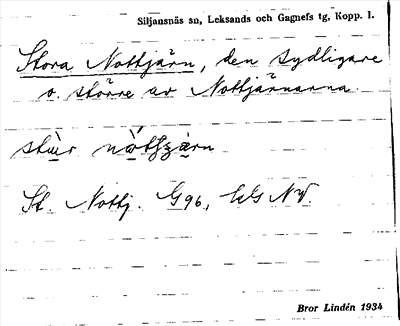 Siljansnäs sn, Leksands och Gagnefs tg. Kopp. l.
Stora Nottjärn, den sydligare
o. större av Nottjärnarna.
stùr
St. Nottj. G96, NV.
Bror Lindén 1934